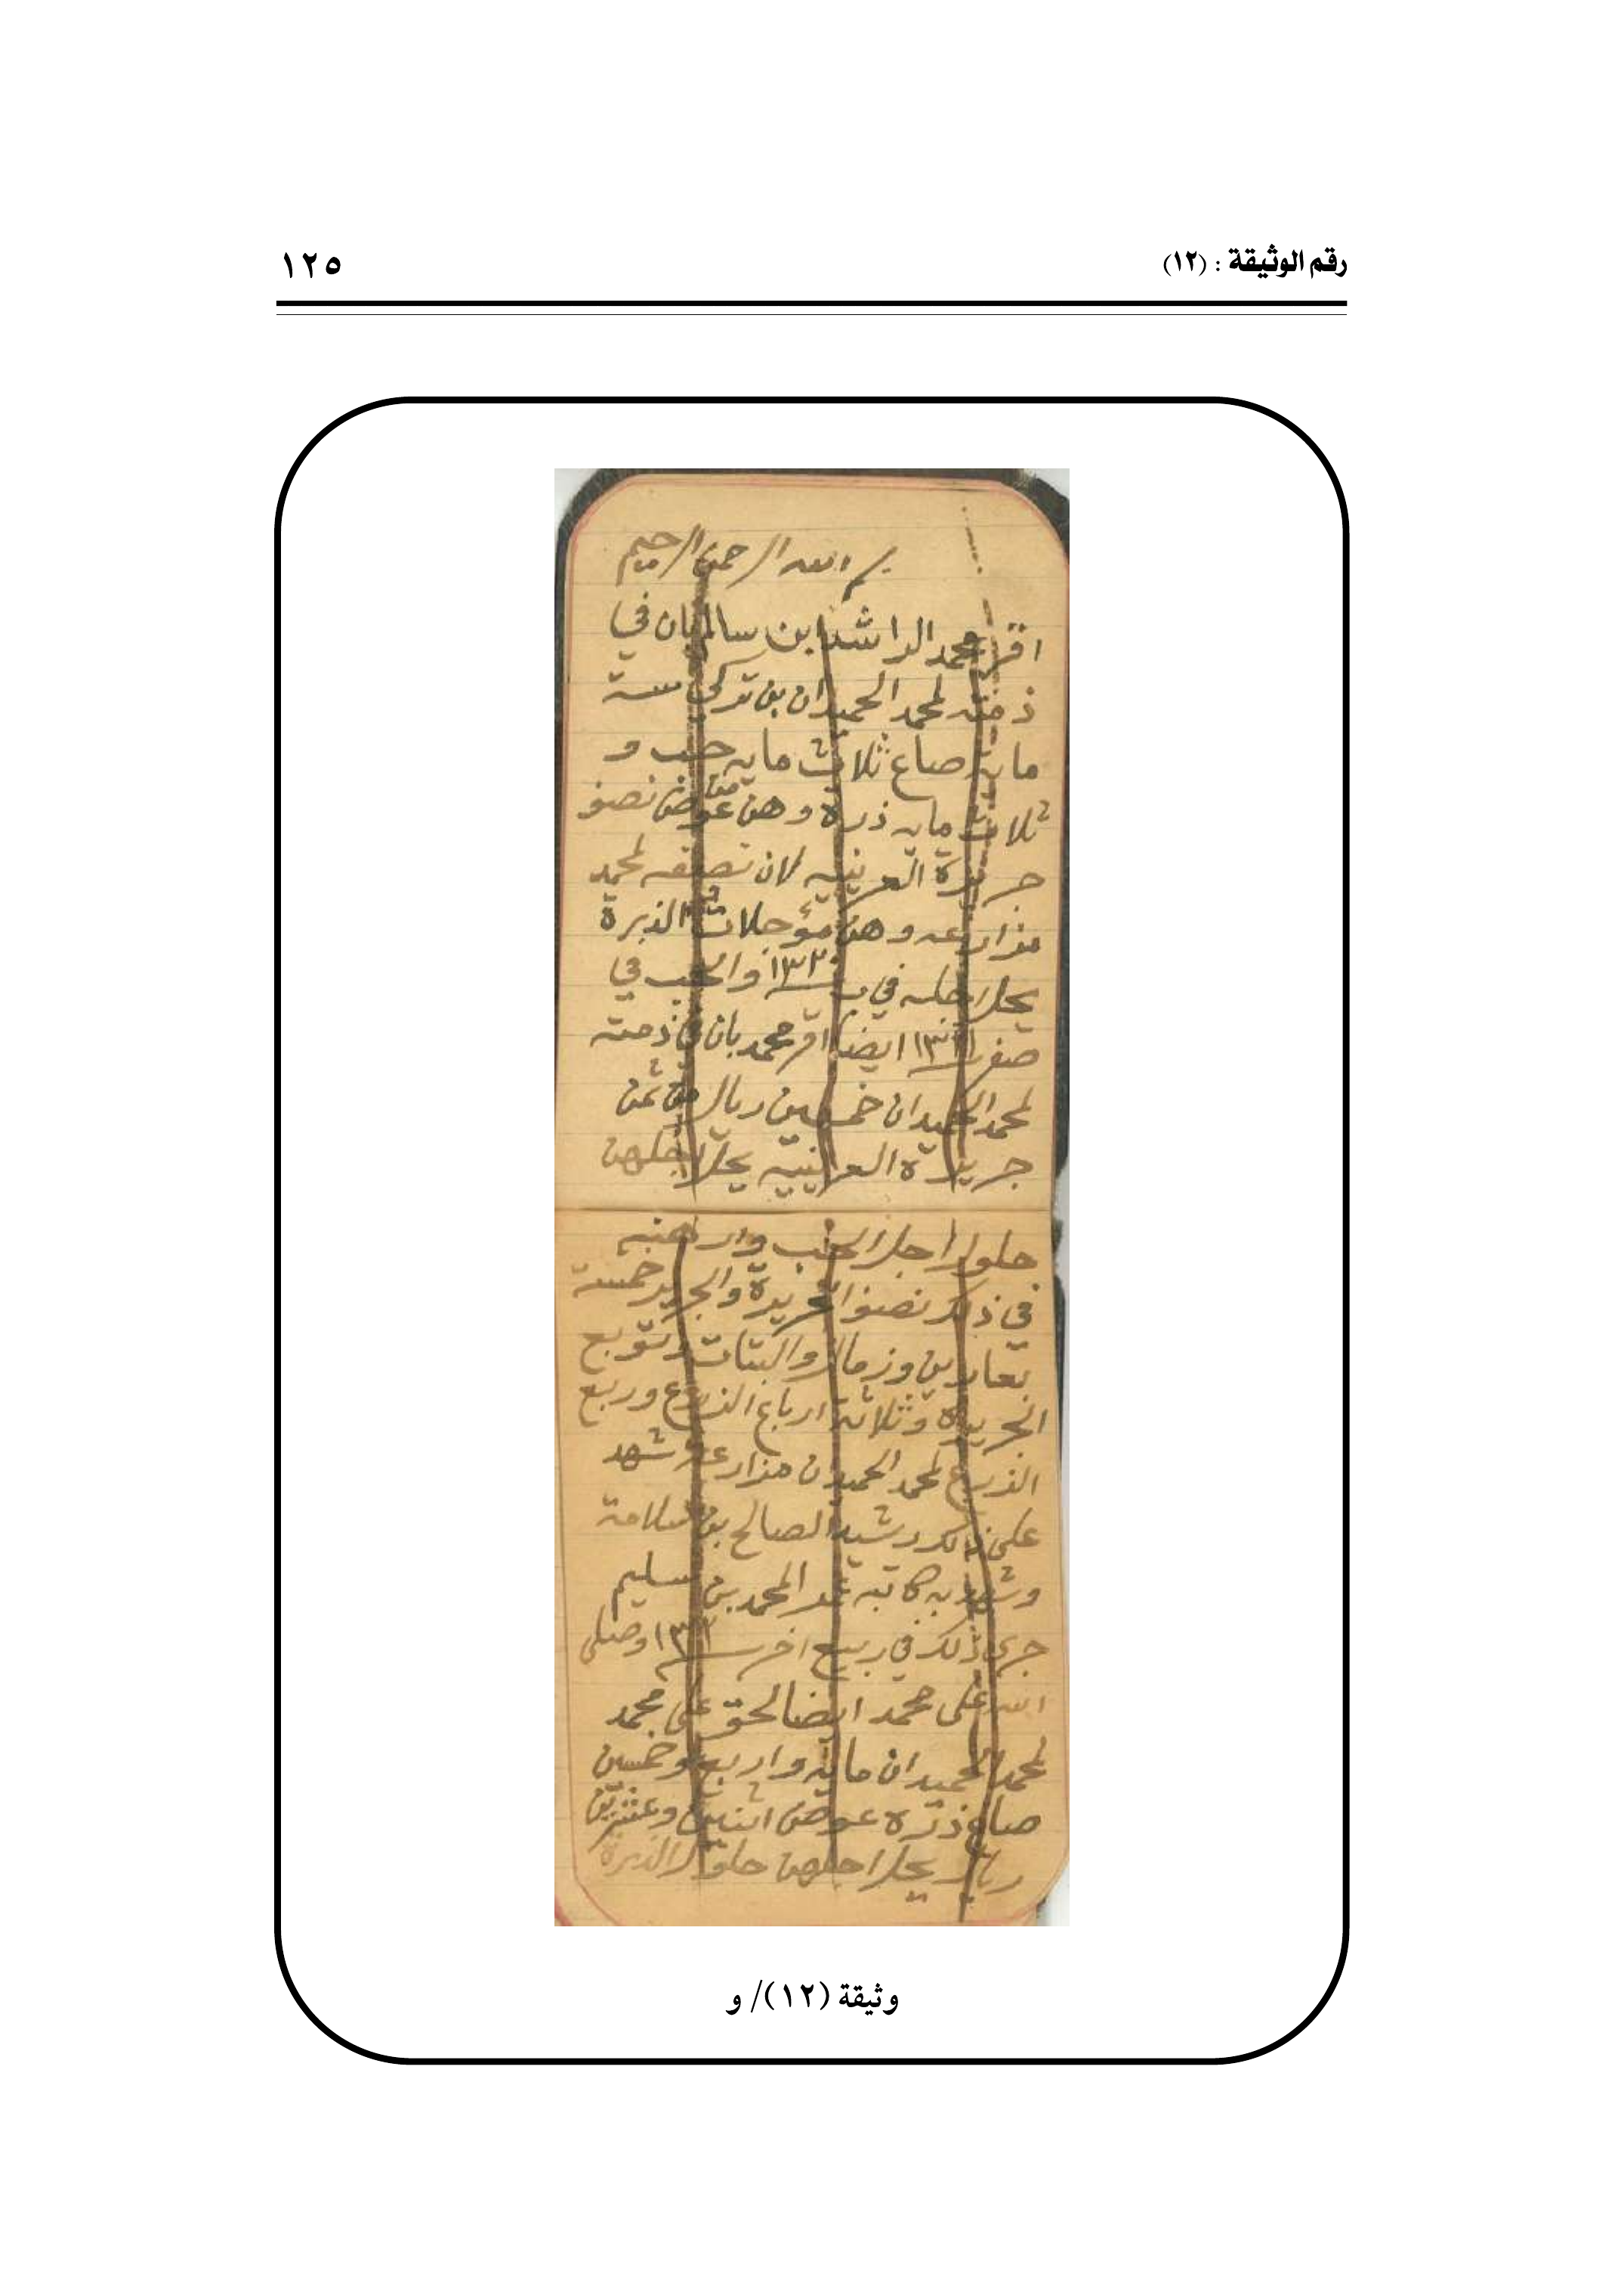 رقم الوثيقة : (١٢)
١٢٥
بسم الله الرحمن الرحيم
اقر محمد الراشد ابن سالم بان في
ذمته لمحمد الحميدان بن تركي ستة
مايه صاع ثلاث مايه حب و
ثلاث مايه ذره وهن من عوض نصف
جريرة العرينيه لان نصفه لمحمد
مزارعه وهن مؤجلات الذرة
يحل اجله في والحب في
صفر ايضا اقر محمد بان في ذمته
لمحمد الحميدان خمسين ريال من ثمن
جريرة العرينيه يحل اجلهن
حلول اجل الحب وارهنه
في ذلك نصف الجريرة والجرير خمسة
بعارين وزمال والبتات وتوبع
الجريرة وثلاثة ارباع الزرع وربع
الزرع لمحمد الحميدان مزارعه شهد
على ذالك رشيد الصالح بن سلامة
وشهد به كاتبه المحمد بن سليم
جرى ذلك في ربيع اخر وصلى
الله على محمد ايضا لحق على محمد
لمحمد الحميدان مايه واربع وخمسين
صاع ذره عوض اثنين وعشرين
ريال يحل اجلهن حلول الذرة
وثيقة (١٢)/ و